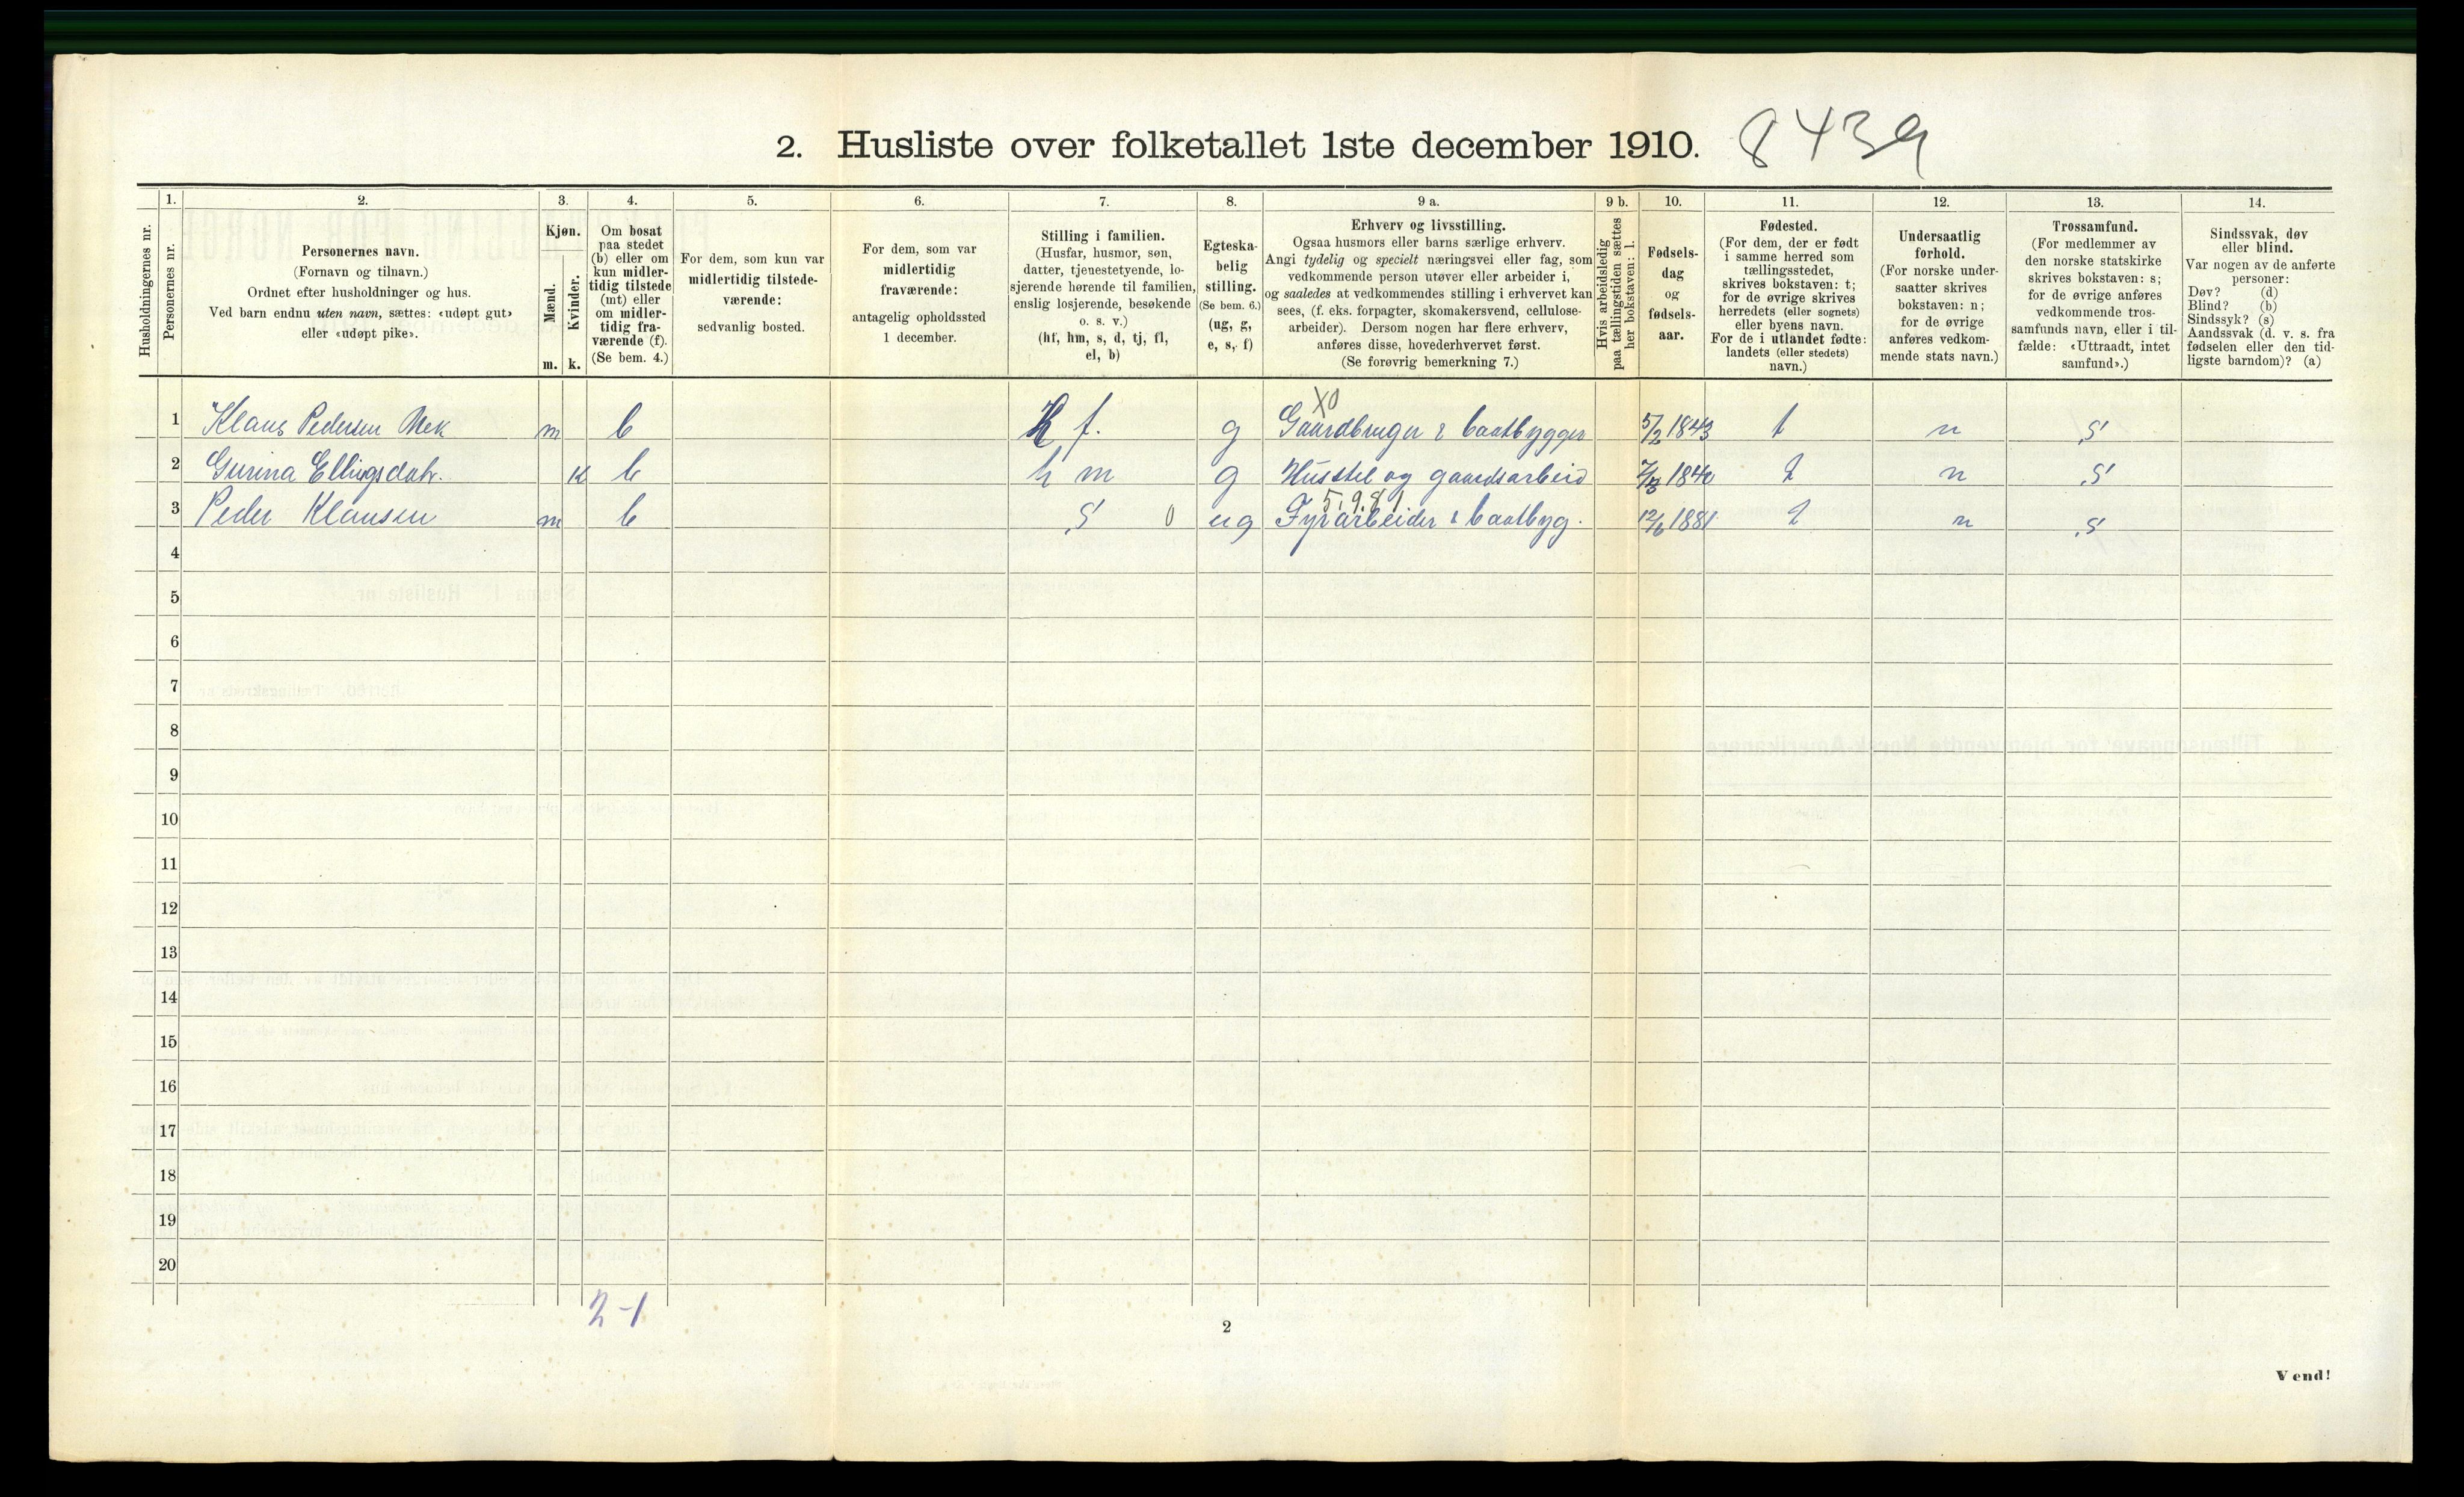 2. Husliste over folketallet 1ste december 1910. 8439
Husholdningernes nr.
1.
Personernes nr.
2.
Personernes navn.
(Fornavn og tilnavn.)
Ordnet efter husholdninger og hus.
Ved barn endnu uten navn, sættes: «udøpt gut»
eller «udøpt pike».
3.
Kjøn.
Mænd.
Kvinder.
m. k.
4.
Om bosat
paa stedet
(b) eller om
kun midler-
tidig tilstede
(mt) eller
om midler-
tidig fra-
værende (f).
(Se bem. 4.)
5.
For dem, som kun var
midlertidig tilstede-
værende:
sedvanlig bosted.
6.
For dem, som var
midlertidig
fraværende:
antagelig opholdssted
1 december.
7.
Stilling i familien.
(Husfar, husmor, søn,
datter, tjenestetyende, lo-
sjerende hørende til familien,
enslig losjerende, besøkende
o. s. v.)
(hf, hm, s, d, tj, fl,
el, b)
8.
Egteska-
belig
stilling.
(Se bem. 6.)
(ug, g,
e, s, f)
9 a.
Erhverv og livsstilling.
Ogsaa husmors eller barns særlige erhverv.
Angi tydelig og specielt næringsvei eller fag, som
vedkommende person utøver eller arbeider i,
og saaledes at vedkommendes stilling i erhvervet kan
sees, (f. eks. forpagter, skomakersvend, cellulose-
arbeider). Dersom nogen har flere erhverv,
anføres disse, hovederhvervet først.
(Se forøvrig bemerkning 7.)
9 b.
Hvis arbeidsledig
paa tællingstiden sættes
her bokstaven: l.
10.
Fødsels-
dag
og
fødsels-
aar.
11.
Fødested.
(For dem, der er født
i samme herred som
tællingsstedet,
skrives bokstaven: t;
for de øvrige skrives
herredets (eller sognets)
eller byens navn.
For de i utlandet fødte:
landets (eller stedets)
navn.)
12.
Undersaatlig
forhold.
(For norske under-
saatter skrives
bokstaven: n;
for de øvrige
anføres vedkom-
mende stats navn.)
13.
Trossamfund.
(For medlemmer av
den norske statskirke
skrives bokstaven: s;
for de øvrige anføres
vedkommende tros-
samfunds navn, eller i til-
fælde: «Uttraadt, intet
samfund».)
14.
Sindssvak, døv
eller blind.
Var nogen av de anførte
personer:
Døv? (d)
Blind? (b)
Sindssyk? (s)
Aandssvak (d. v. s. fra
fødselen eller den tid-
ligste barndom)? (a)
X0
1 Klaus Pedersen m b h f. g Gaardbruger & baatbygger 5/2 1843 t n s
2 Gurina Ellingsdatr. k b h m g Husstel og gaardsarbeid 1840 t n s
5.9.8.1
3 Peder Klausen m b s 0 ug Fyrarbeider & baatbyg. 12/6 1881 t n s
4
5
6
7
8
9
10
11
12
13
14
15
16
17
18
19
20
2-1
2
Vend!